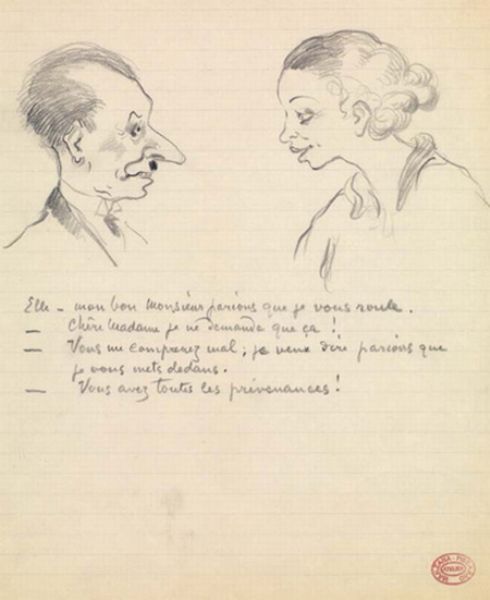 Elle - mon bon Monsieur parions que je vous roule.
— Chère Madame je ne demande que ça !
— Vous me comprenez mal ; je veux dire parions que
je vous mets dedans.
— Vous avez toutes les prévenances !
ATELIER